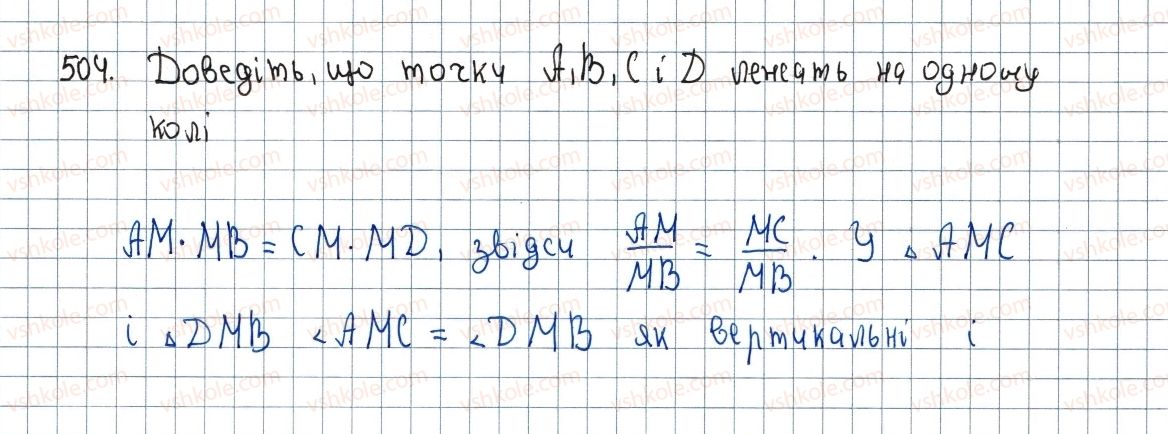 504. Доведіть, що точки A, B, C і D лежать на одному
колі
AM · MB = CM · MD, звідси AM/MB = MC/MB . У △ AMC
і △ DMB ∠AMC = ∠DMB як вертикальні і